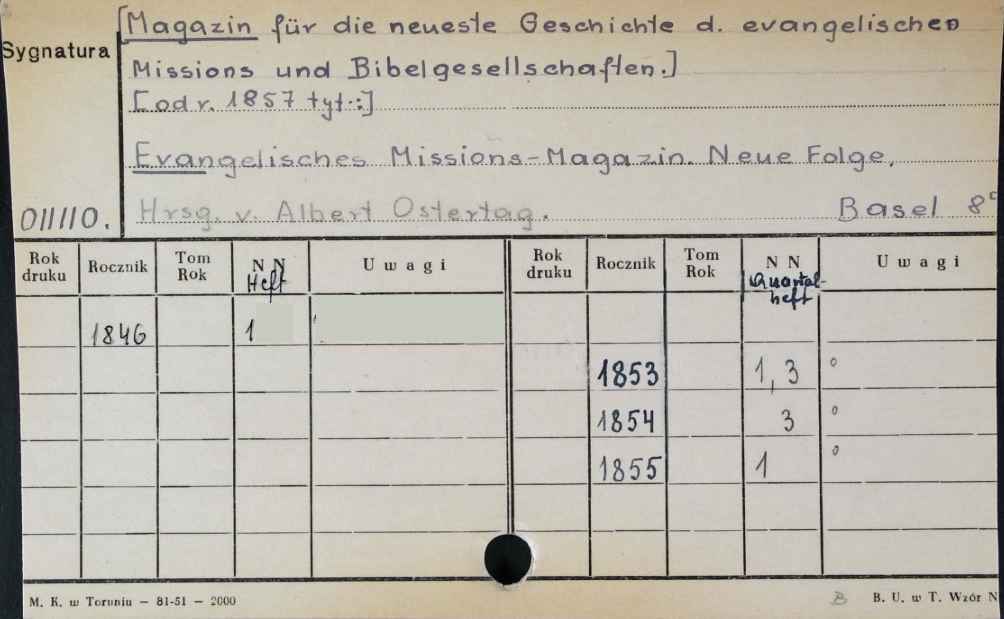 [Magazin für die neueste Geschichte d. evangelischen
Sygnatura
Missions und Bibelgesellschaften.]
[od r. 1857 tyt.:]
Evangelisches Missions-Magazin. Neue Folge,
011110. Hrsg. v. Albert Ostertag. Basel 8°
Rok druku Rocznik Tom Rok N N Heft Uwagi Rok druku Rocznik Tom Rok N N Quartal-heft Uwagi
1846 1
1853 1, 3 °
1854 3 °
1855 1 °
M. K. w Toruniu — 81-51 — 2000 B B. U. w T. Wzór N